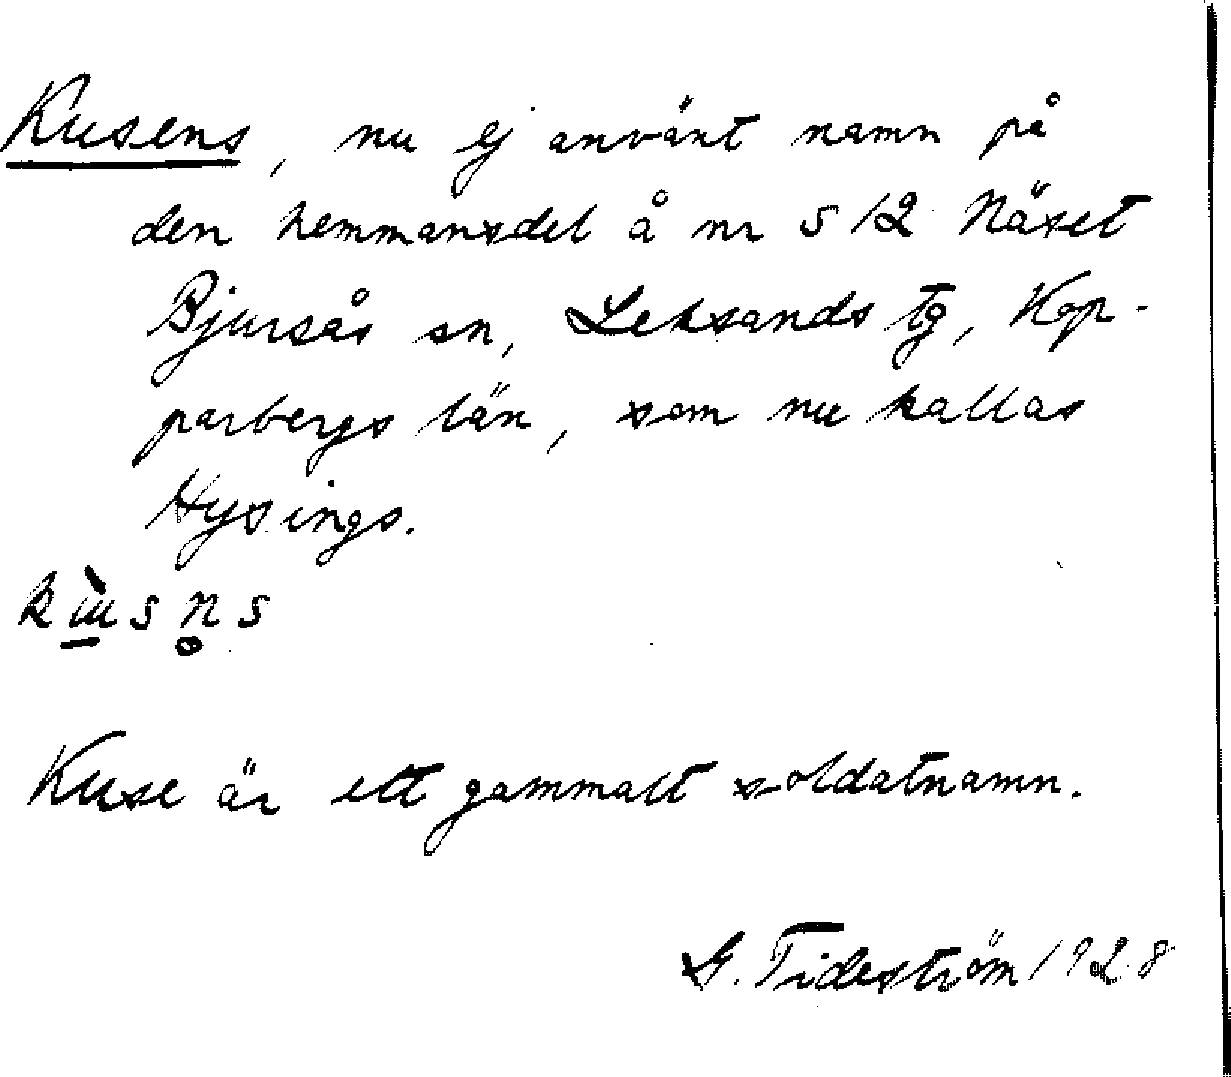 Kusens, nu ej använt namn på
den hemmansdel å nr 512 Näset
Bjursås sn, Leksands tg, Kop-
parbergs län, som nu kallas
Hysings.
kùsn̥s
Kuse är ett gammalt soldatnamn.
G. Tideström 1928